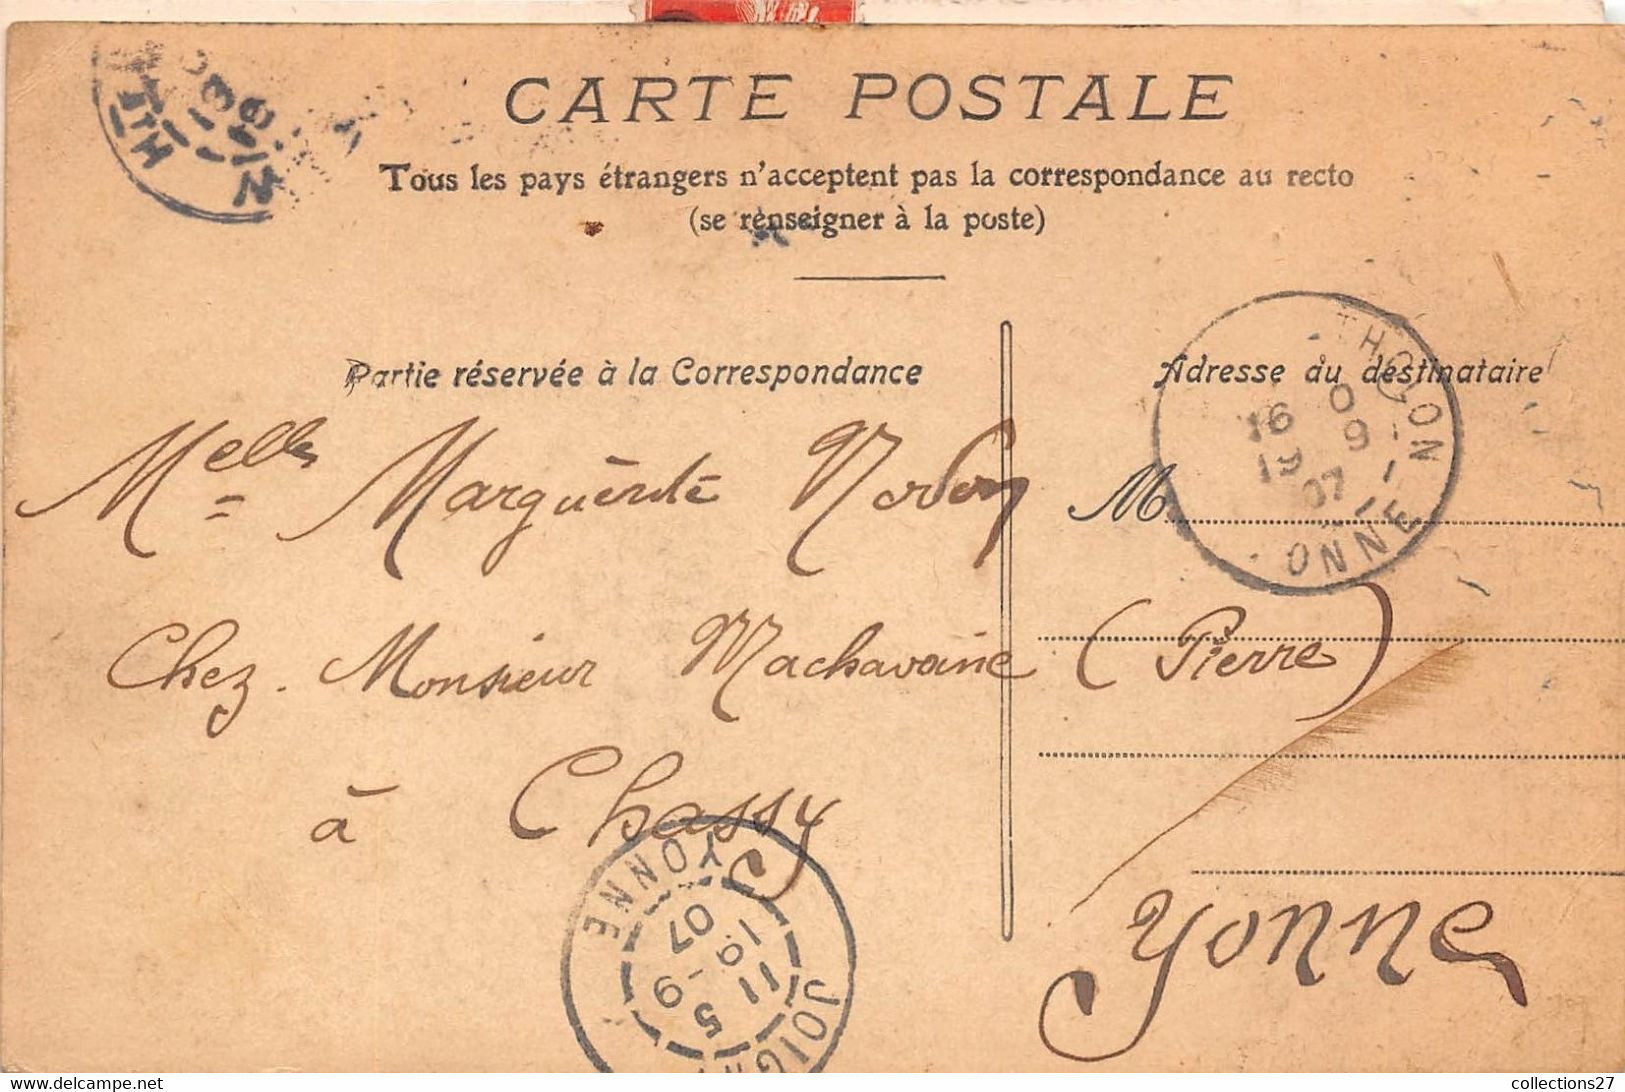 CARTE POSTALE
Tous les pays étrangers n'acceptent pas la correspondance au recto
(se renseigner à la poste)
Partie réservée à la Correspondance
Adresse du destinataire
THOON
16 0
19 9
07
YONNE
Melle Marguerite
M
Chez Monsieur Machavoine (Pierre)
à Chassy
Yonne
YONNE
07
19
5-9
11
JOIG
collections27